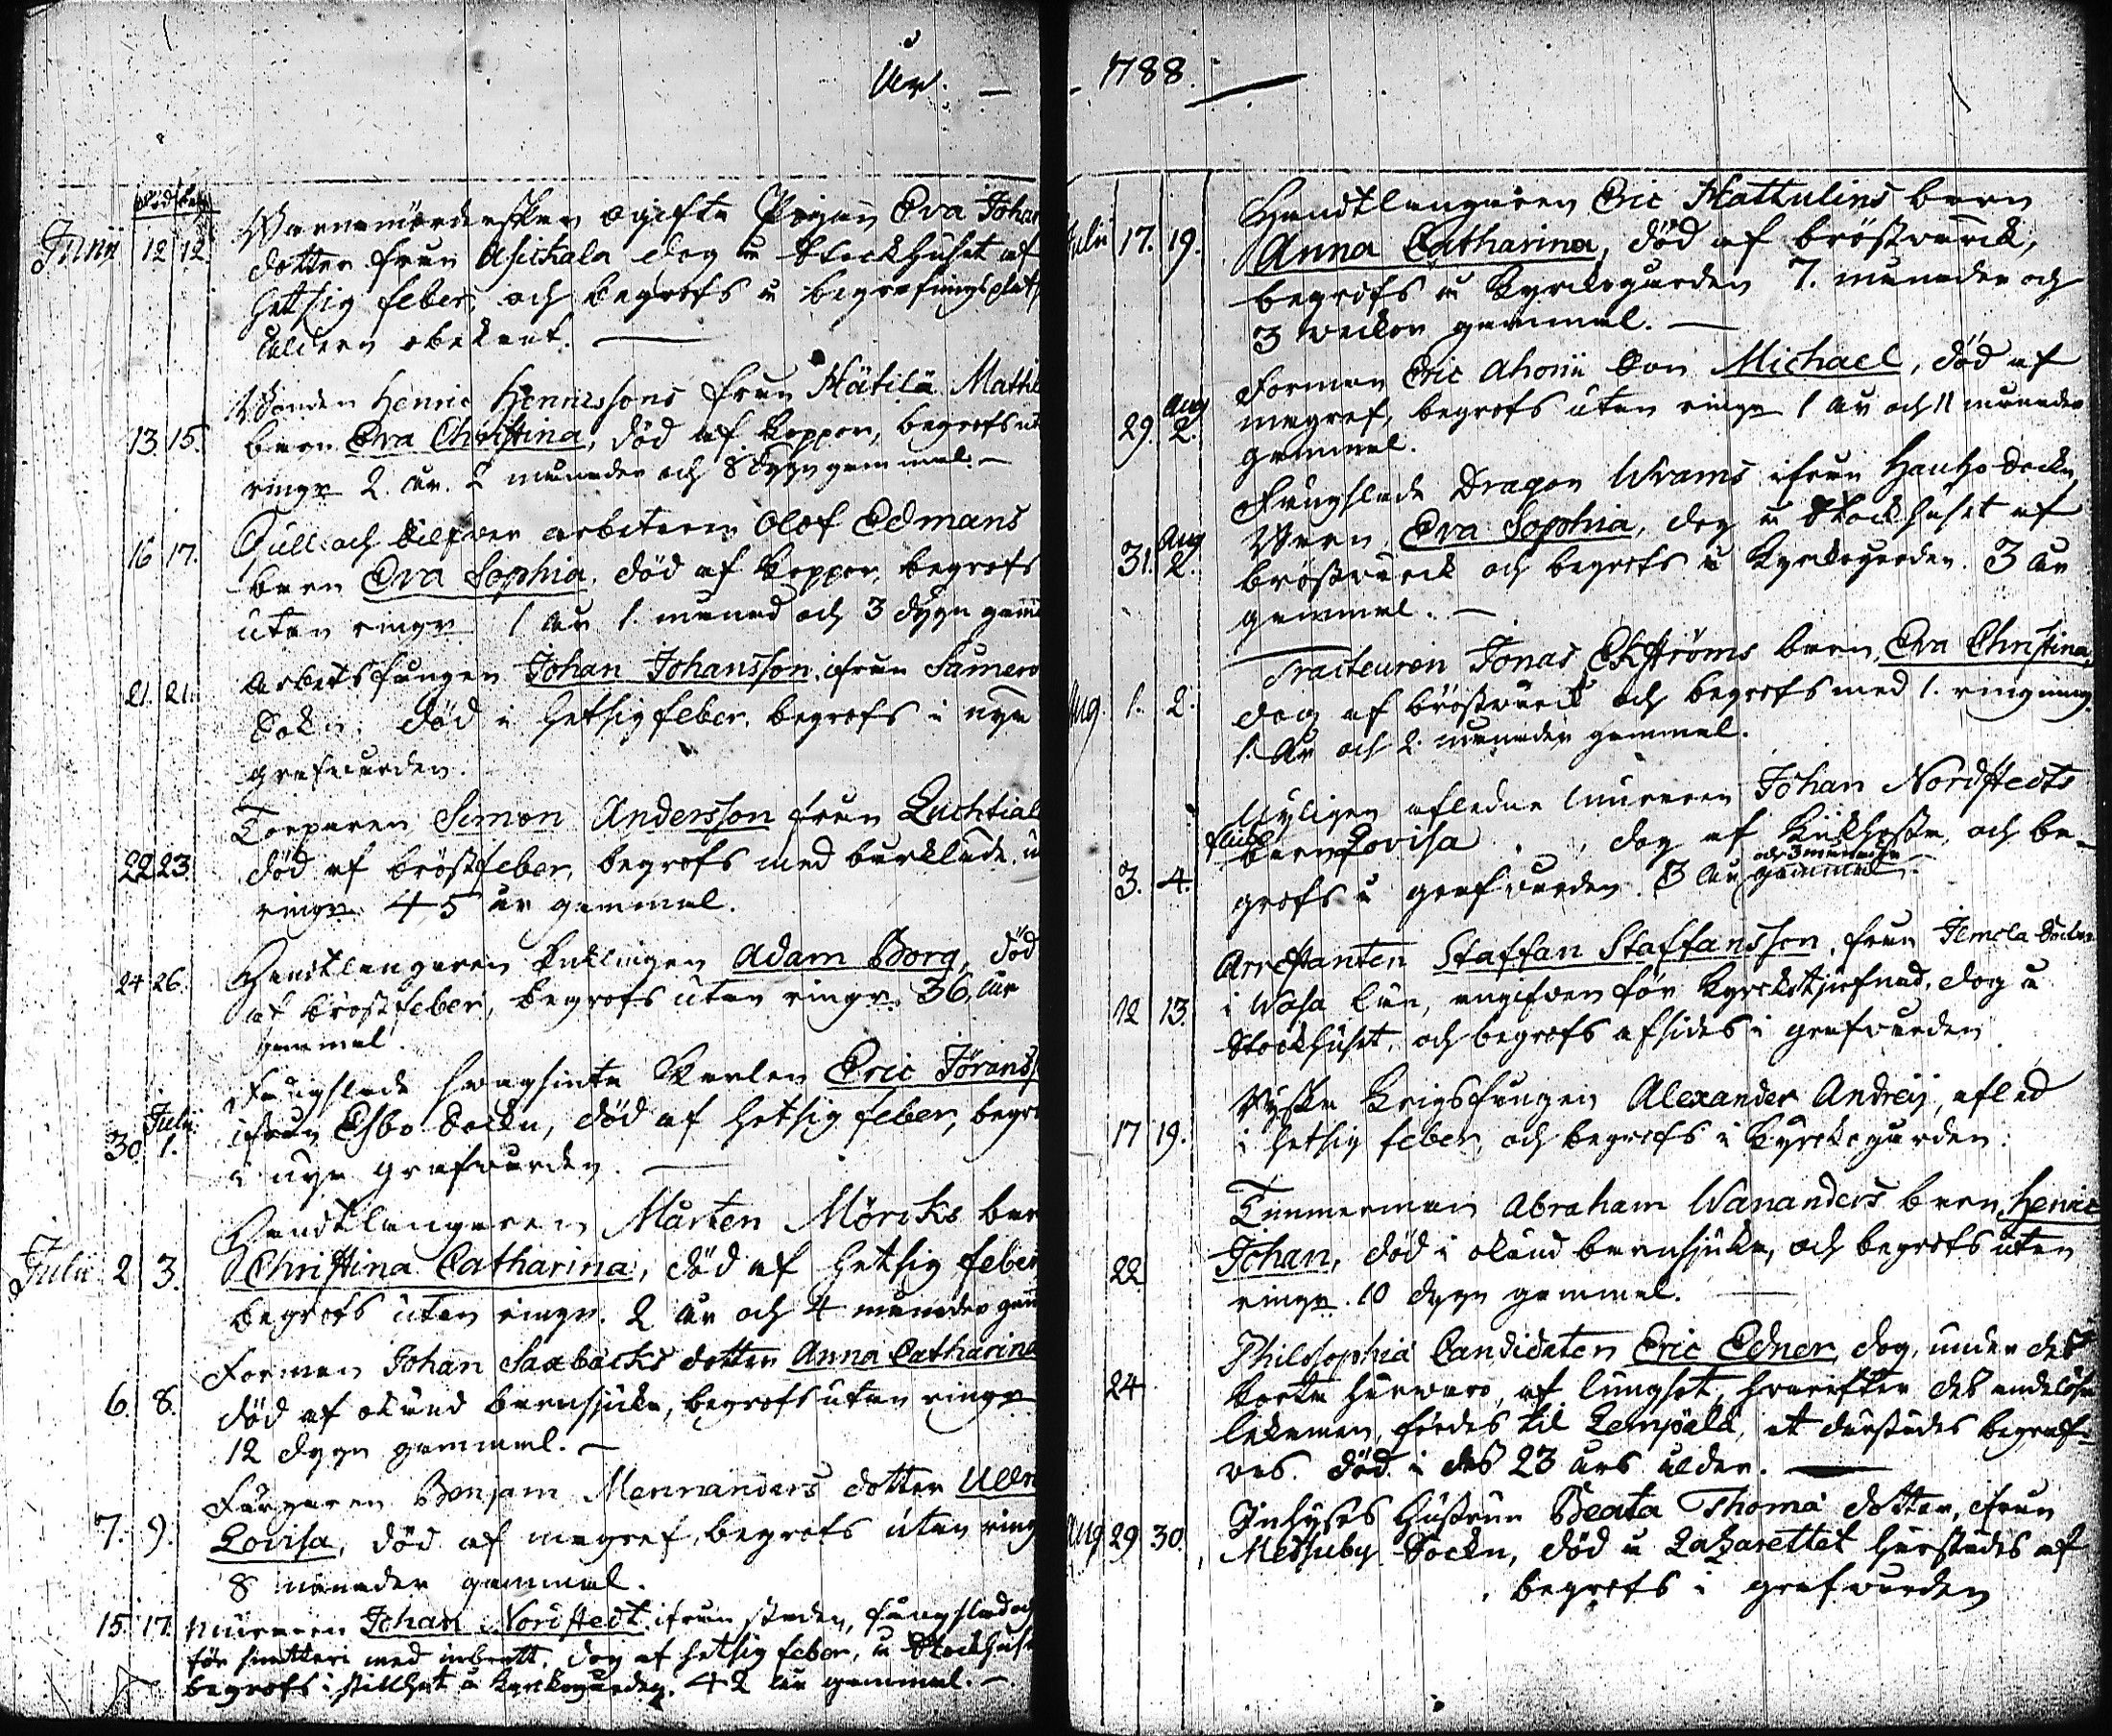 År. — 1788.
död begr
Junii 12 12. Barnamörderskan ogifta Pigan Eva Johans
dotter från Asichala dog å Stockhuset af
hetsig feber, och begrofs å begrafningsplats
åldern obekant. —
Bonden Henric Henricssons från Hätilä
13. 15. barn Eva Christina, död af koppor, begrofs utan
ringn. 2. år. 2 månader och 8 dygn gammal. —
Guld och Silfver arbetaren Olof Edmans
16 17. barn Eva Sophia. död af koppor, begrofs
utan ringn. 1 år 1. månad och 3 dygn gam̄
Arbetsfången Johan Johansson, ifrån
21. 21. Sokn. död i hetsig feber, begrofs i nya
grafvården.
Torparen Simon Andersson från
22 23. död af bröstfeber, begrofs med barklade, u
ringn. 45 år gammal.
Handtlangaren Enklingen Adam Borg, död
24 26. af bröstfeber, begrofs utan ringn. 36, år
gammal.
Fängslade svagsinta Karlen Eric Jöranss
30. Julii 1. ifrån Esbo Sockn, död af hetsig feber, begro
i nya grafvården. —
Handtlangaren Mårten Möricks bar
Julii 2 3. Christina Catharina, död af hetsig feber
begrofs utan ringn. 2 år och 4 månader gam̄
Forman Johan Saxbäcks dotter Anna Catharina
6. 8. död af okänd barnsjuka, begrofs utan ringn
12 dygn gammal. —
Färgaren Benjam Mennanders dotter Ulln
7. 9. Lovisa, död af magref, begrofs utan ring
8 månader gammal.
15. 17. Muraren Johan Nordstedt ifrån staden, fängslad och
för snatteri med inbrott, dog af hetsig feber, å Stockhuset
begrofs i stillhet å kyrkogården. 42 år gammal. —
Handtlangaren Eric Hattulins barn
Julii 17. 19. Anna Catharina, död af bröstvärck,
begrofs å Kyrckogården 7. månader och
3 veckor gammal. —
Forman Eric Ahonii Son Michael, död af
29. Aug 2. magref, begrofs utan ringn 1 år och 11 månader
gammal.
Fängslade Dragon Wrams ifrån Hauho Sockn
31. Aug 2. Barn, Eva Sophia, dog å Stockhuset af
bröstvärck och begrofs å Kyrkogården. 3 år
gammal. —
Tracteuren Jonas Ekströms barn, Eva Christina,
Aug. 1. 2. dog af bröstvärck och begrofs med 1. ringning.
1. år och 2. månader gammal.
Nyligen afledne muraren Johan Nordstedts
3. 4. barn Lovisa, dog af Kikhosta, och be-
grofs i grafvården. 3 år och 3 månader gammal.
Arrestanten Staffan Staffansson, från Ilmola Sockn
12 13. i Wasa län, angifven för Kyrckotjufnad, dog å
Stockhuset, och begrofs afsides i grafvården
Ryska Krigsfången Alexander Andreij, afled
17 19. i hetsig feber, och begrofs i Kyrckogården.
Timmerman Abraham Wananders barn, Henric
22 Johan, död i okänd barnsjuka, och begrofs utan
ringn. 10 dygn gammal. —
Philosophiæ Candidaten Eric Edner, dog, under dess
24 korta härvaro, af lungsot, hvarefter des andelösa
lekamen, fördes til Lempälä, at därstädes begraf-
vas. Död i des 23 års ålder. —
Inhyses Hustrun Beata Thomæ dotter, ifrån
Aug 29 30. Messuby Sockn, död å Lazarettet härstädes af
begrofs i grafvården